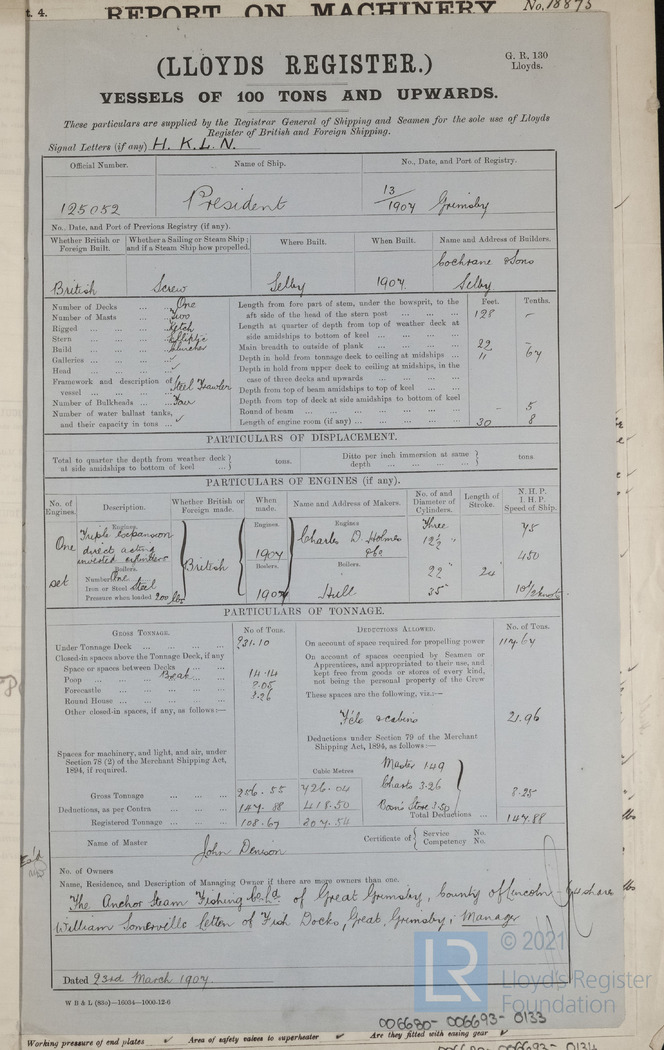 t. 4. REPORT ON MACHINERY No. 18873
(LLOYDS REGISTER.)
G. R. 130
Lloyds.
VESSELS OF 100 TONS AND UPWARDS.
These particulars are supplied by the Registrar General of Shipping and Seamen for the sole use of Lloyds
Register of British and Foreign Shipping.
Signal Letters (if any) H. K. L. N.
Official Number. Name of Ship. No., Date, and Port of Registry.
125052 President 13/1907 Grimsby
No., Date, and Port of Previous Registry (if any).
Whether British or Foreign Built. Whether a Sailing or Steam Ship; and if a Steam Ship how propelled. Where Built. When Built. Name and Address of Builders.
British Screw Selby 1907 Cochrane & Sons Selby.
Number of Decks ... One
Number of Masts ... Two
Rigged ... Ketch
Stern ... Elliptic
Build ... Clincher
Galleries ... ✓
Head ... ✓
Framework and description of vessel ... Steel Trawler
Number of Bulkheads ... Four
Number of water ballast tanks, and their capacity in tons ... ✓
Feet. Tenths.
Length from fore part of stem, under the bowsprit, to the aft side of the head of the stern post ... 128 –
Length at quarter of depth from top of weather deck at side amidships to bottom of keel ...
Main breadth to outside of plank ... 22 –
Depth in hold from tonnage deck to ceiling at midships ... 11 67
Depth in hold from upper deck to ceiling at midships, in the case of three decks and upwards ...
Depth from top of beam amidships to top of keel ...
Depth from top of deck at side amidships to bottom of keel
Round of beam ... – 5
Length of engine room (if any) ... 30 8
PARTICULARS OF DISPLACEMENT.
Total to quarter the depth from weather deck at side amidships to bottom of keel } tons. Ditto per inch immersion at same depth ... } tons.
PARTICULARS OF ENGINES (if any).
No. of Engines. Description. Whether British or Foreign made. When made. Name and Address of Makers. No. of and Diameter of Cylinders. Length of Stroke. N.H.P. I.H.P. Speed of Ship.
Engines. Engines. Engines Three 75
One Triple Expansion direct acting inverted cylinders 1907 Charles D. Holmes & Co 12½" 450
Boilers. British Boilers. Boilers.
set Number One 22" 24"
Iron or Steel Steel
Pressure when loaded 200 lbs. 1907 Hull 35" 10½ knots
PARTICULARS OF TONNAGE.
GROSS TONNAGE. No of Tons. DEDUCTIONS ALLOWED. No. of Tons.
Under Tonnage Deck ... 231.10
Closed-in spaces above the Tonnage Deck, if any
Space or spaces between Decks
Poop ... Break ... 14.14
Forecastle ...
Round House ...
Other closed-in spaces, if any, as follows:—
Spaces for machinery, and light, and air, under Section 78 (2) of the Merchant Shipping Act, 1894, if required.
On account of space required for propelling power 117.67
On account of spaces occupied by Seamen or Apprentices, and appropriated to their use, and kept free from goods or stores of every kind, not being the personal property of the Crew
These spaces are the following, viz.:—
F'c'le & cabins 21.96
Deductions under Section 79 of the Merchant Shipping Act, 1894, as follows:—
Master 1.49
Charts 3.26
Bosn's Store 3.50 8.25
Cubic Metres
Gross Tonnage ... 256.55 726.04
Deductions, as per Contra ... 147.88 418.50
Total Deductions ... 147.88
Registered Tonnage ... 108.67 307.54
Name of Master John Denison Certificate of { Service No. Competency No.
No. of Owners
Name, Residence, and Description of Managing Owner if there are more owners than one.
The Anchor Steam Fishing Co Ld of Great Grimsby, County of Lincoln – 64 shares
William Somerville Letten of Fish Docks, Great Grimsby; Manager
Dated 23rd March 1907.
W B & L (83o)—16034—1000-12-6
© 2021
LR Lloyd's Register
Foundation
006680-006693-0133
Working pressure of end plates ✓ Area of safety valves to superheater ✓ Are they fitted with easing gear ✓
006680-006693-0134